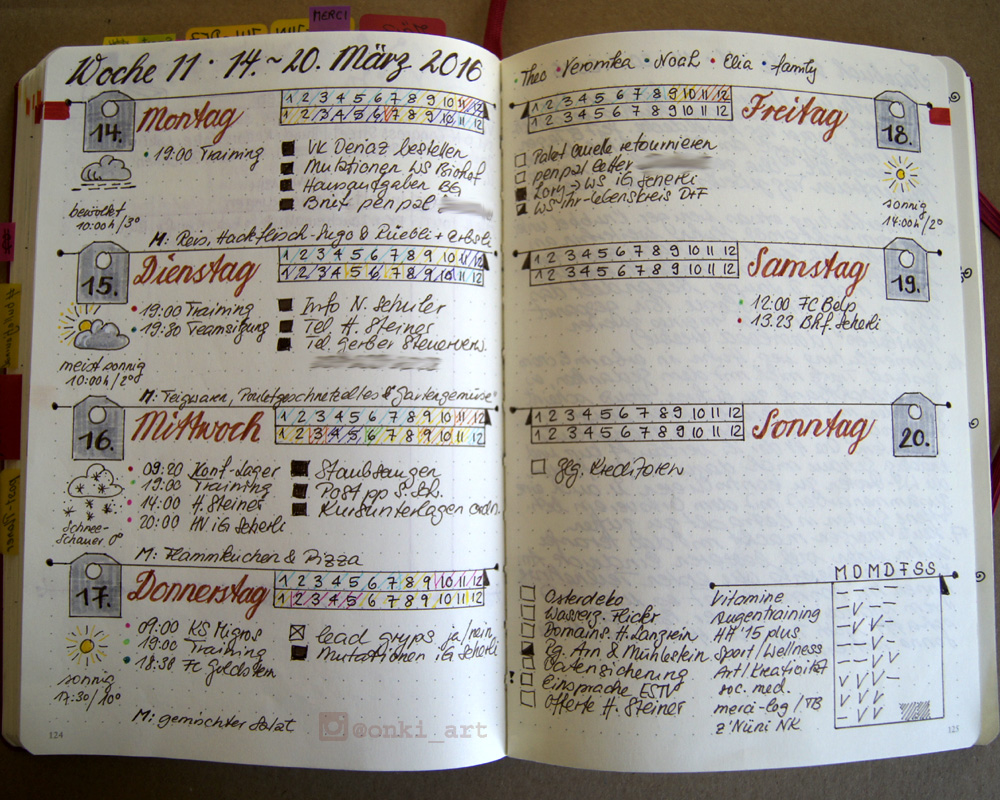 MERCI
Woche 11 · 14.~20. März 2016
14. Montag
1 2 3 4 5 6 7 8 9 10 11 12
1 2 3 4 5 6 7 8 9 10 11 12
• 19:00 Training
bewölkt
10:00h/3°
VK Deriaz bestellen
Mutationen WS Biohof
Hausaufgaben BG
Brief penpal
M: Reis, Hackfleisch-Lugo & Rüebli + Erbsli
15. Dienstag
1 2 3 4 5 6 7 8 9 10 11 12
1 2 3 4 5 6 7 8 9 10 11 12
• 19:00 Training
• 19:30 Teamsitzung
meist sonnig
10:00h/2°
Info N. Schuler
Tel. H. Steiner
Tel. Gerber Steuerverw.
M: Teigwaren, Pouletgeschnetzeltes & "Gartengemüse"
16. Mittwoch
1 2 3 4 5 6 7 8 9 10 11 12
1 2 3 4 5 6 7 8 9 10 11 12
• 09:20 Konf-Lager
• 19:00 Training
• 14:00 H. Steiner
• 20:00 HV iG Scherli
Schnee-
schauer 0°
Staubsaugen
Post pp S. Sk.
Kursunterlagen ordn.
M: Flammkuchen & Pizza
17. Donnerstag
1 2 3 4 5 6 7 8 9 10 11 12
1 2 3 4 5 6 7 8 9 10 11 12
• 09:00 KS Migros
• 19:00 Training
• 18:38 FC Goldstern
sonnig
17:30/10°
lead gryps ja/nein
Mutationen iG Scherli
M: gemischter Salat
@onki_art
124
• Theo • Veronika • Noah • Elia • family
1 2 3 4 5 6 7 8 9 10 11 12
1 2 3 4 5 6 7 8 9 10 11 12
Freitag 18.
Paket Quelle retournieren
penpal letter
Lorm > WS iG Scherli
WS ihr-Lebenskreis D+F
sonnig
14:00h/2°
1 2 3 4 5 6 7 8 9 10 11 12
1 2 3 4 5 6 7 8 9 10 11 12
Samstag 19.
• 12:00 FC Belp
• 13.23 Bhf. Scherli
1 2 3 4 5 6 7 8 9 10 11 12
1 2 3 4 5 6 7 8 9 10 11 12
Sonntag 20.
Kreditoren
Osterdeko
Wasserz. Flicker
Domains H. Langrein
Pg. Ann & Mühlestein
Datensicherung
Einsprache ESTV
Offerte H. Steiner
M D M D F S S
Vitamine
Augentraining
HH '15 plus
Sport/Wellness
Art/Kreativität
soc. med.
merci-log/TB
z'Nüni NK
125